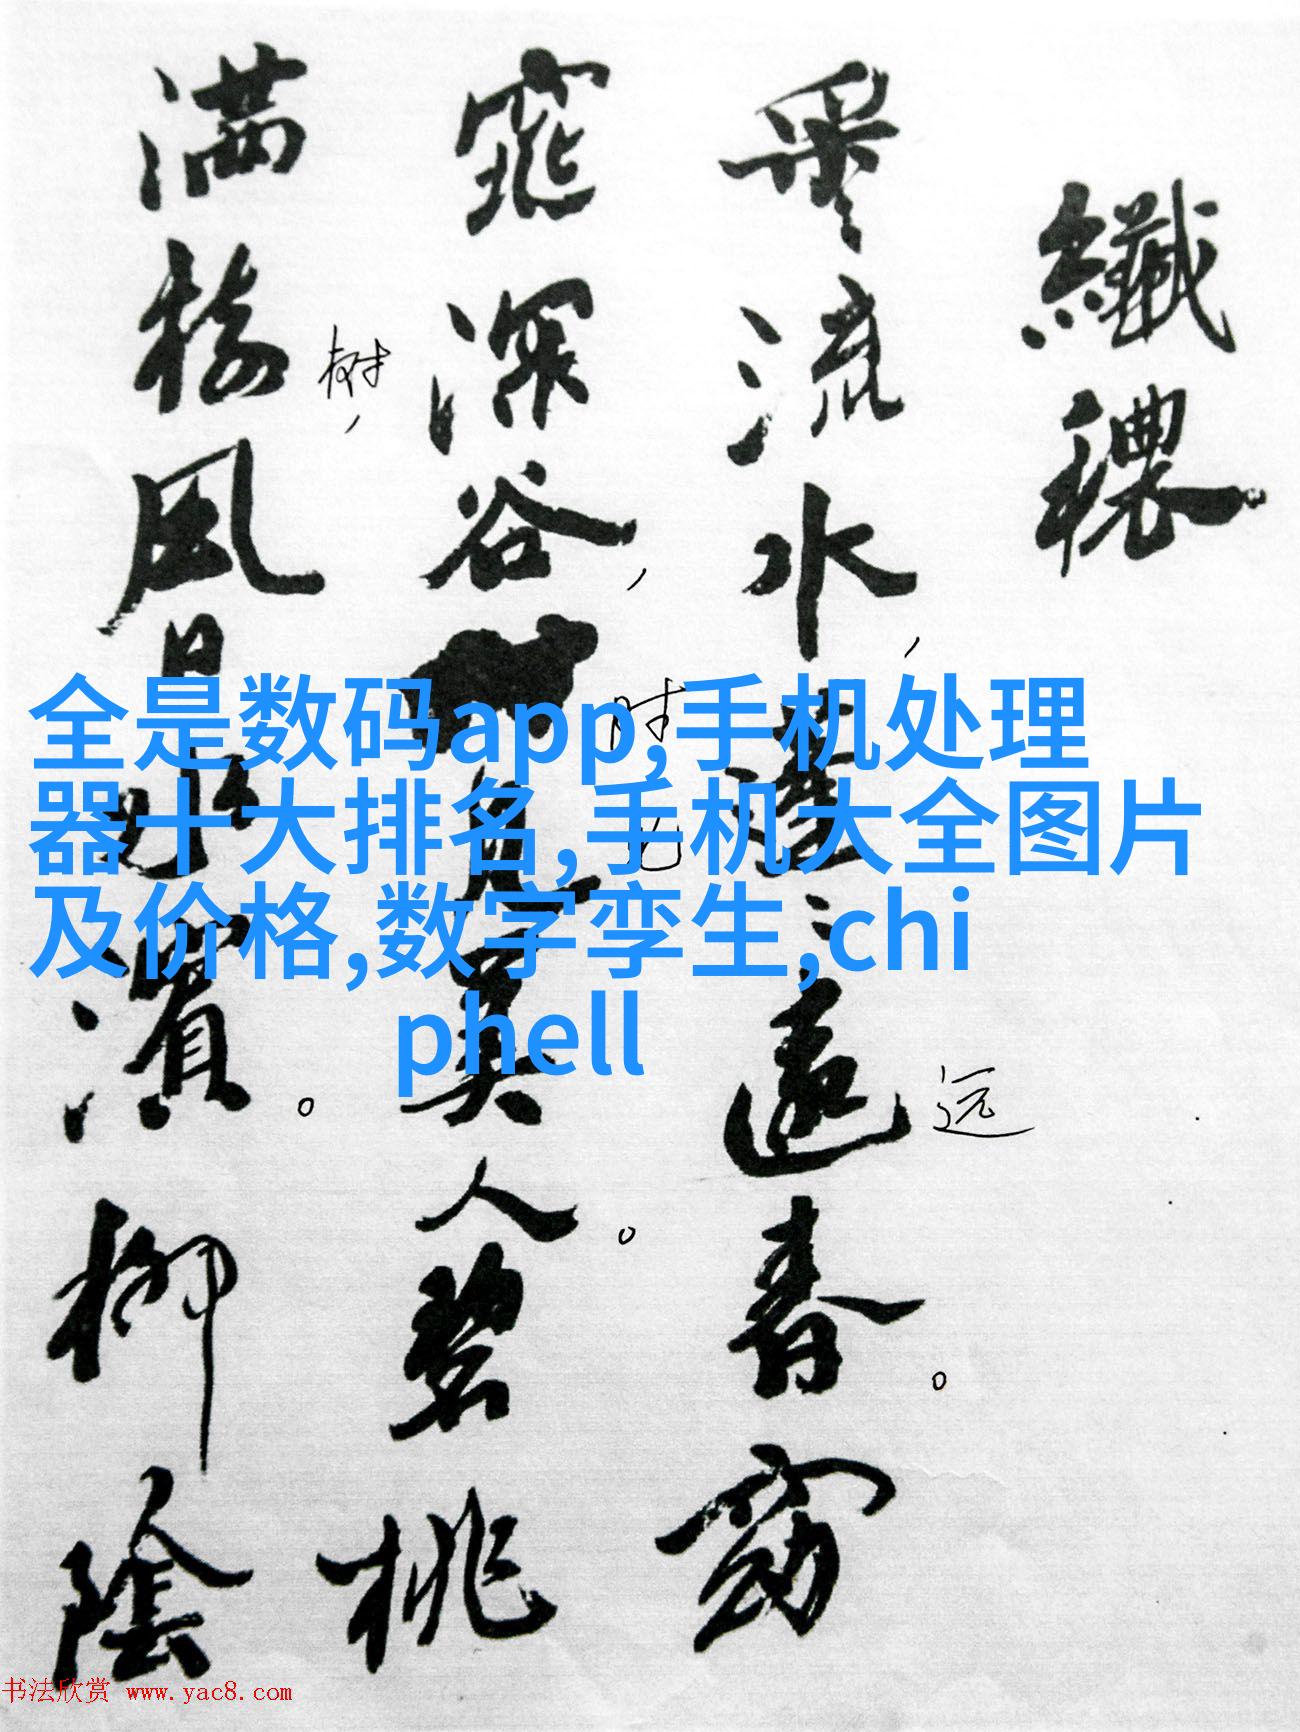 纖穠
采々流水，蓬々遠春。窈
窕深谷，見美人。碧桃
满樹，風日水濱。柳陰
树
时
远
全是数码app,手机处理
器十大排名,手机大全图片
及价格,数字孪生,chi
phell
书法欣赏 www.yac8.com